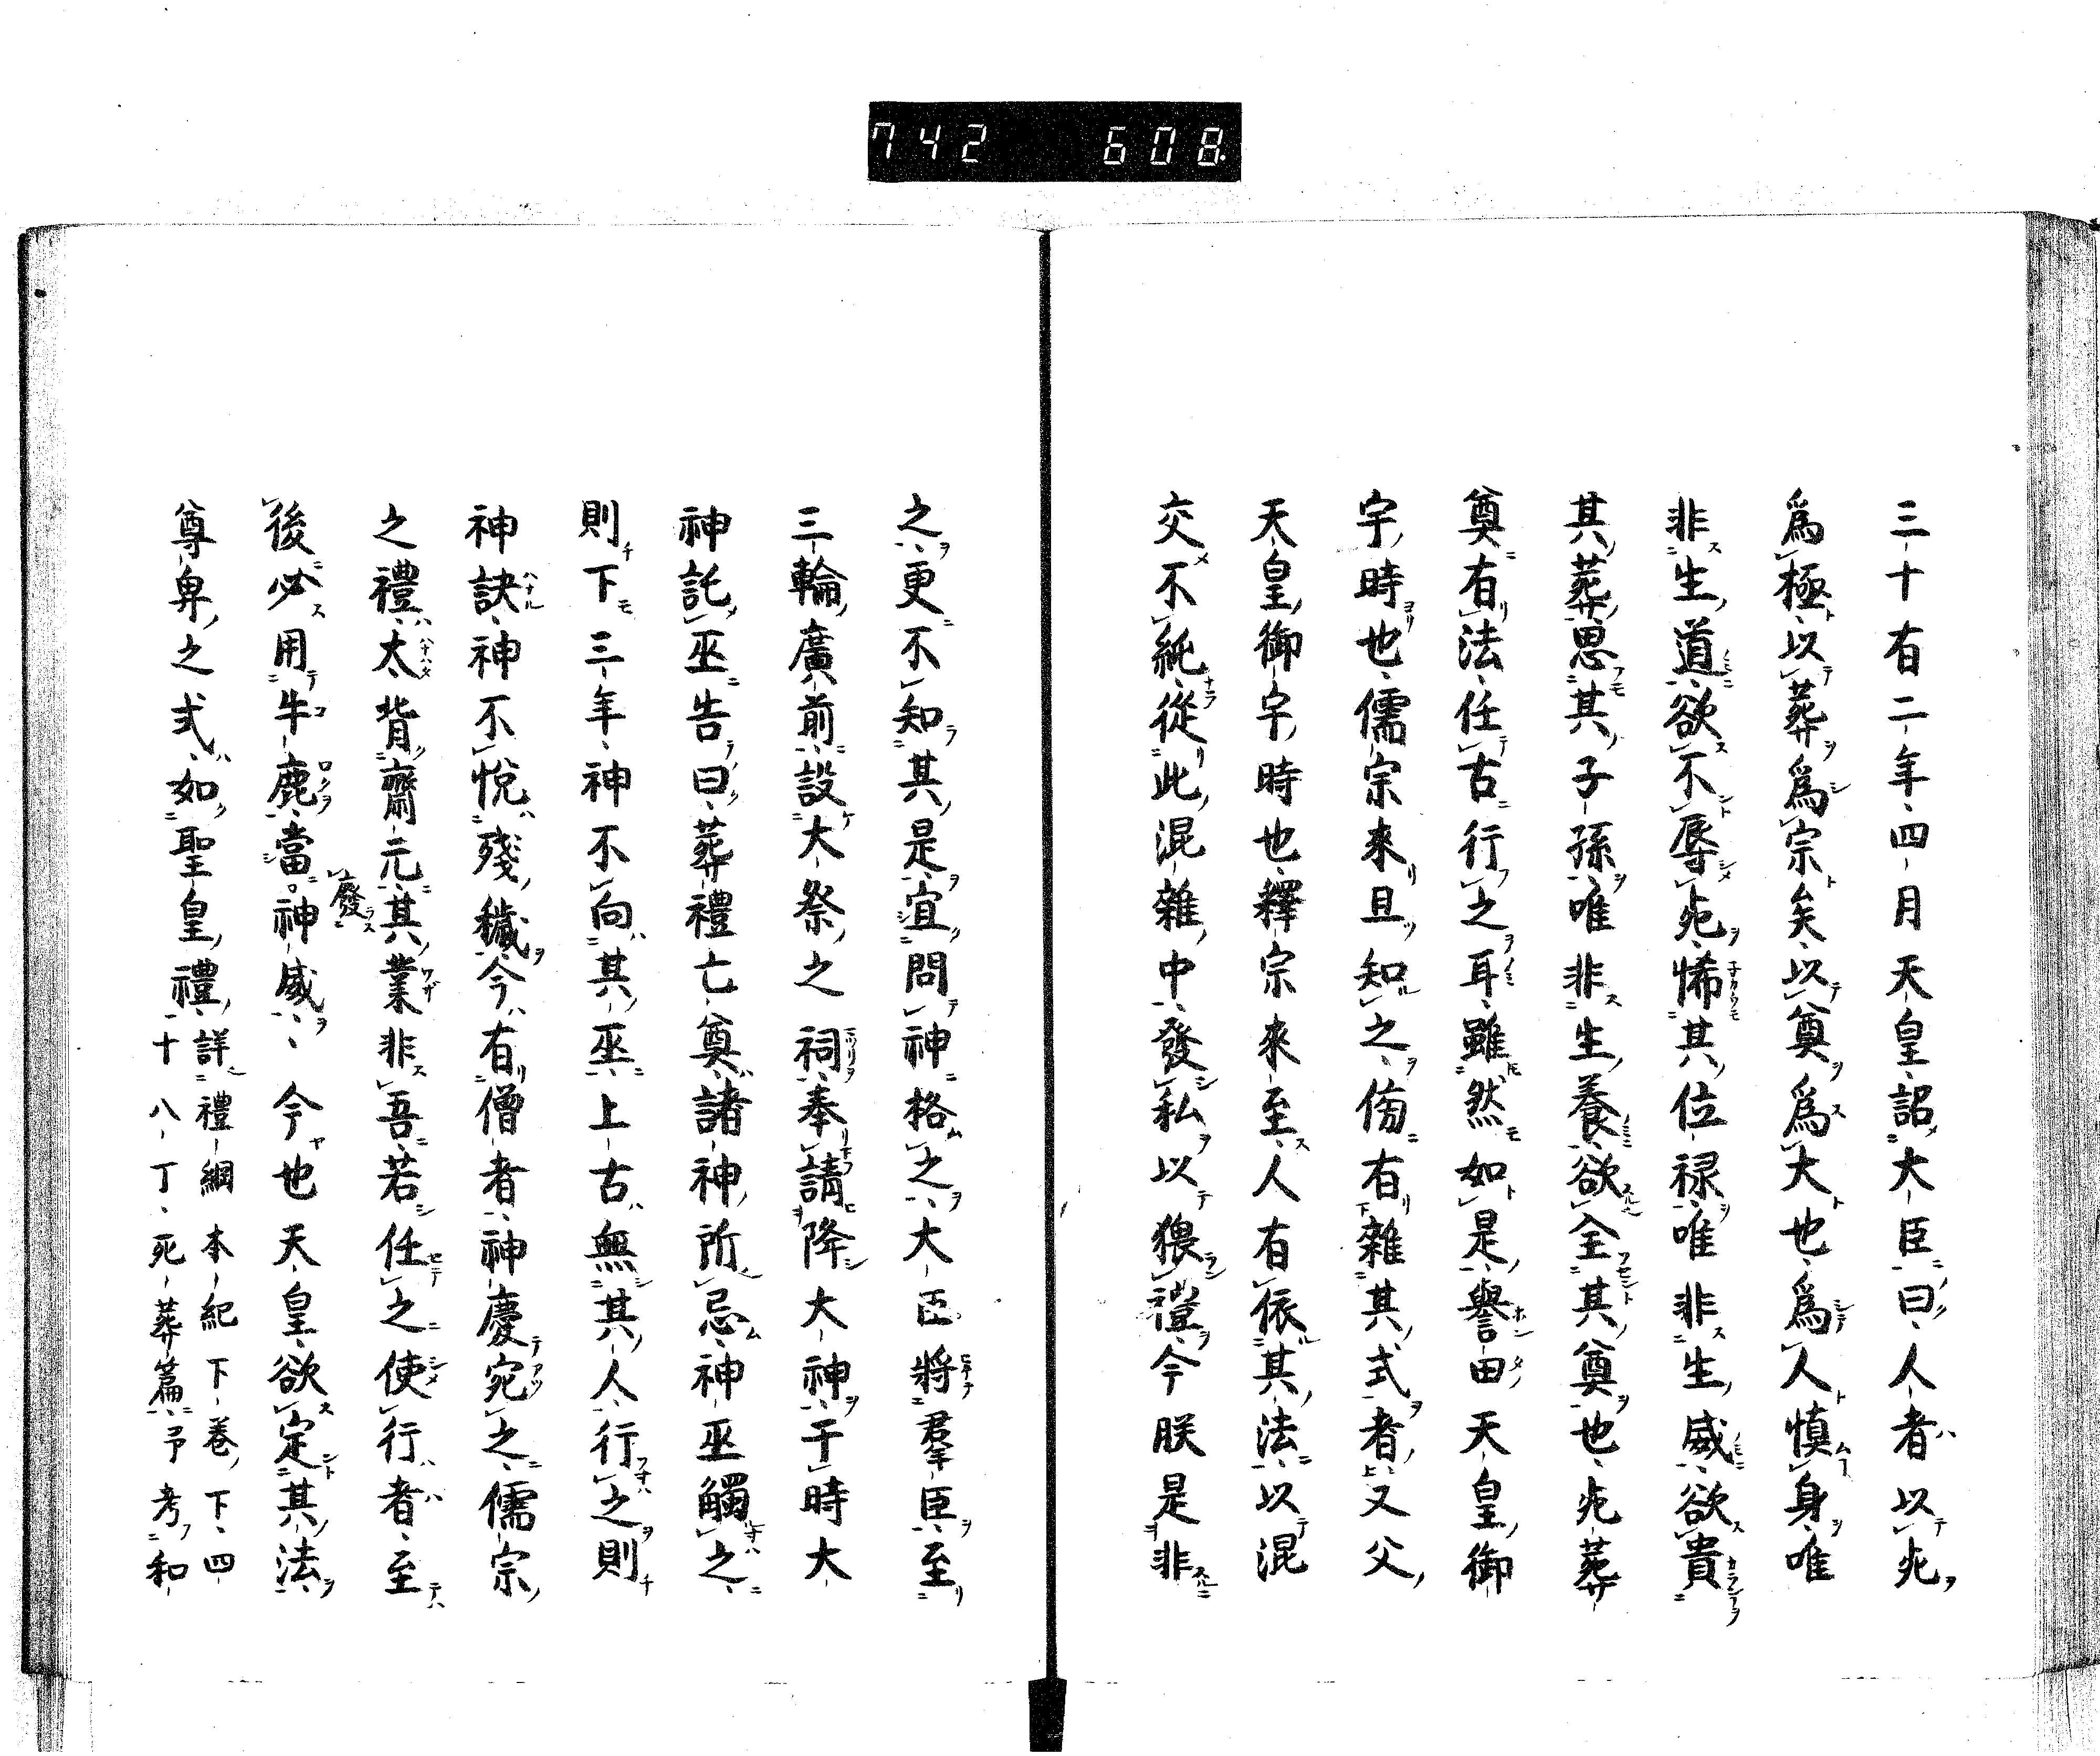 742 608.
三十有二年四月天皇詔大臣曰人者以死
爲極以葬爲宗矣以奠爲大也爲人慎身唯
非生道欲不辱死悕其位禄唯非生威欲貴
其葬思其子孫唯非生養欲全其奠也死葬
奠有法任古行之耳雖然如是譽田天皇御
宇時也儒宗來且知之傍有雜其式者又父
天皇御宇時也釋宗來至人有依其法以混
交不純從此混雜中發私以猥禮今朕是非
之更不知其是宜問神格之大臣將羣臣至
三輪廣前設大祭之祠奉請降大神于時大
神託巫告曰葬禮亡奠諸神所忌神巫觸之
則下三年神不向其巫上古無其人行之則
神訣神不悅殘穢今有僧者神慶宛之儒宗
之禮太背齋元其業非吾若任之使行者至
後必用牛鹿當廢神威今也天皇欲定其法
尊卑之式如聖皇禮
詳禮綱本紀下卷下四
十八丁死葬篇予考和